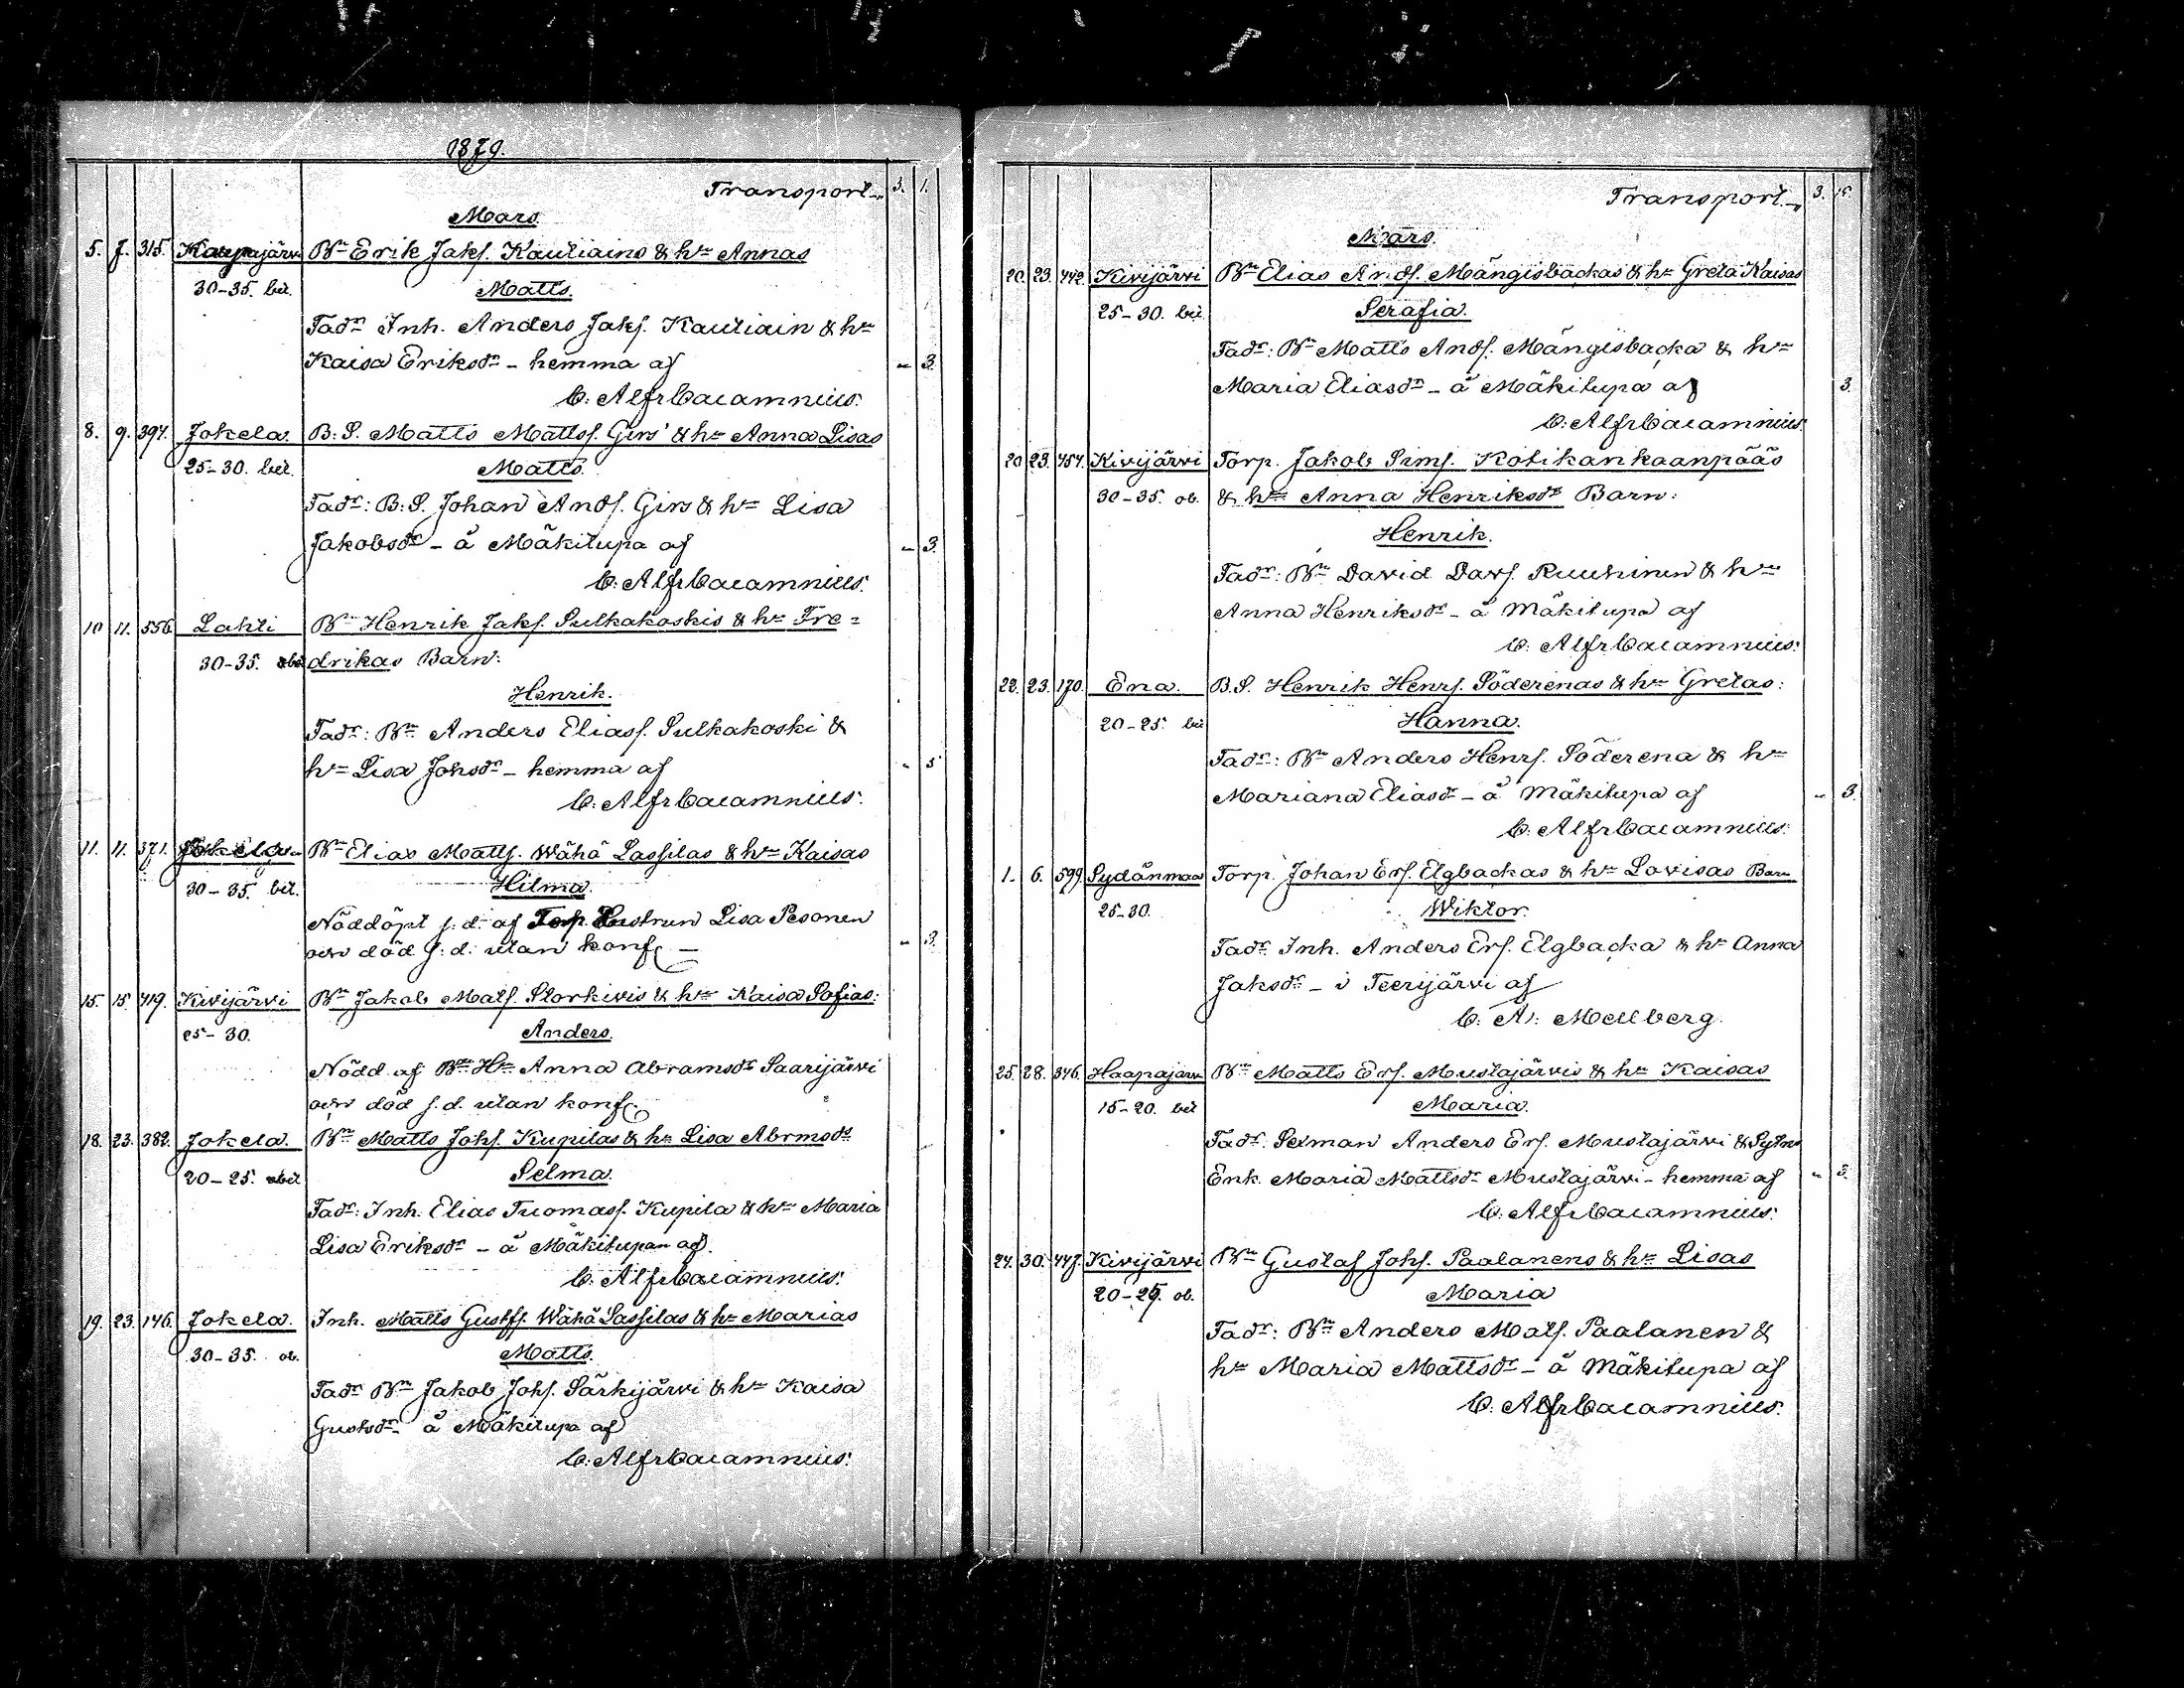 1879.
Transport 3. 1.
Mars.
5. 7. 315. Haapajärvi Bn Erik Jakſ. Kautiains & hn Annas
30-35. bit. Matts.
Fadr Inh. Anders Jakſ. Kautiain & hn
Kaisa Eriksdr - hemma af - 3.
C: Alfr Cajamnius.
8. 9. 397. Jokela. B: S. Matts Mattsſ. Girs' & hn Anna Lisas
25-30. bit. Matts.
Fadr: B: S. Johan Andſ. Girs & hn Lisa
Jakobsdr - å Mäkitupa af - 3.
C: Alfr Cajamnius.
10 11. 556. Lahti Bn Henrik Jakſ. Sulkakoskis & hn Fre=
30-35. drikas Barn:
Henrik.
Fadr: Bn Anders Eliasſ. Sulkakoski &
hn Lisa Johsdr - hemma af - 5
C: Alfr Cajamnius.
11. 11. 371. Jokela Bn Elias Mattſ. Wähä Lassilas & hn Kaisas
30-35. bit. Hilma.
Nöddöpt s. d. af Torp. Hustrun Lisa Pesonen
och död s. d. utan konf. - 3.
15. 15 419. Kivijärvi Bn Jakob Matſ. Storkivis & hn Kaisa Sofias:
25-30. Anders.
Nödd. af Bn Hn Anna Abramsdr Saarijärvi
och död s. d. utan konf.
18. 23. 382. Jokela. Bn Matts Johſ. Kupilas & hn Lisa Abrmsdr
20-25. Selma.
Fadr: Inh. Elias Tuomasſ. Kupila & hn Maria
Lisa Eriksdr - å Mäkitupan af.
C: Alfr Cajamnius.
19. 23. 146. Jokela. Inh. Matts Gustfſ. Wähä Lassilas & hn Marias
30-35. ob. Matts.
Fadr Bn Jakob Johſ. Särkijärvi & hn Kaisa
Gustsdr - å Mäkitupa af
C: Alfr Cajamnius.
Transport. 3. 15.
Mars.
20. 23. 442. Kivijärvi Bn Elias Andſ. Mängisbackas & hn Greta Kaisas
25-30. bit. Serafia.
Fadr: Bn Matts Andſ. Mängisbacka & hn
Maria Eliasdr - å Mäkitupa af 3.
C: Alfr Cajamnius.
20 23. 454. Kivijärvi Torp. Jakob Simſ. Kotikankaanpääs
30-35. ob. & hn Anna Henriksdr Barn:
Henrik.
Fadr: Bn David Davſ. Ruuhinen & hn
Anna Henriksdr - å Mäkitupa af
C: Alfr Cajamnius.
22. 23. 170. Ena. B.S. Henrik Henrſ. Söderenas & hn Gretas:
20-25. bit Hanna.
Fadr: Bn Anders Henrſ. Söderena & hn
Mariana Eliasdr - å Mäkitupa af - 3.
C: Alfr Cajamnius.
1. 6. 599. Sydänmaa Torp. Johan Erſ. Elgbackas & hn Lovisas Barn
25-30. Wiktor.
Fadr. Inh. Anders Erſ. Elgbacka & hn Anna
Jaksdr - i Teerijärvi af
C: A: Mellberg.
25. 28. 346. Haapajärvi Bn Matts Erſ. Mustajärvis & hn Kaisas
15-20. bit Maria.
Fadr: Selman Anders Erſ. Mustajärvi & Sytns
Enk. Maria Mattsdr Mustajärvi - hemma af - 3.
C: Alfr Cajamnius.
24. 30. 447. Kivijärvi Bn Gustaf Johſ. Paalanens & hn Lisas
20-25. ob. Maria
Fadr: Bn Anders Matſ. Paalanen &
hn Maria Mattsdr - å Mäkitupa af
C: Alfr Cajamnius.